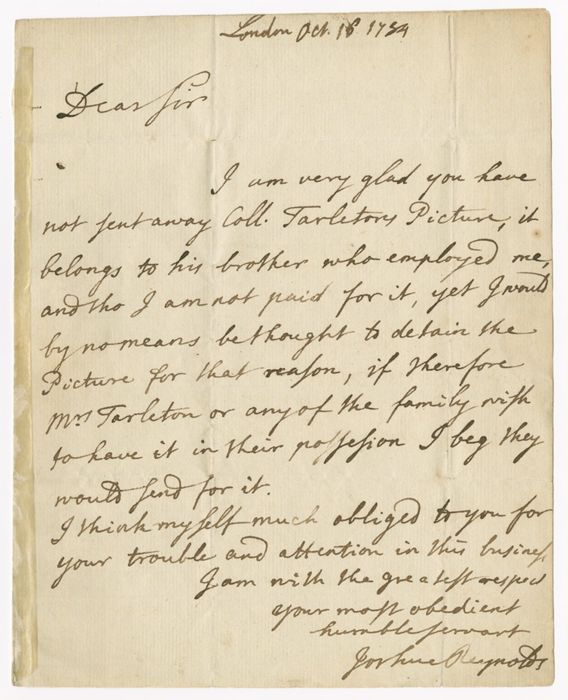 London Oct. 18 1784
Dear Sir
I am very glad you have
not sent away Coll. Tarletons Picture, it
belongs to his brother who employed me,
and tho I am not paid for it, yet I would
by no means be thought to detain the
Picture for that reason, if therefore
Mrs Tarleton or any of the family wish
to have it in their possession I beg they
would send for it.
I think myself much obliged to you for
your trouble and attention in this business
I am with the greatest respect
your most obedient
humble servant
Joshua Reynolds